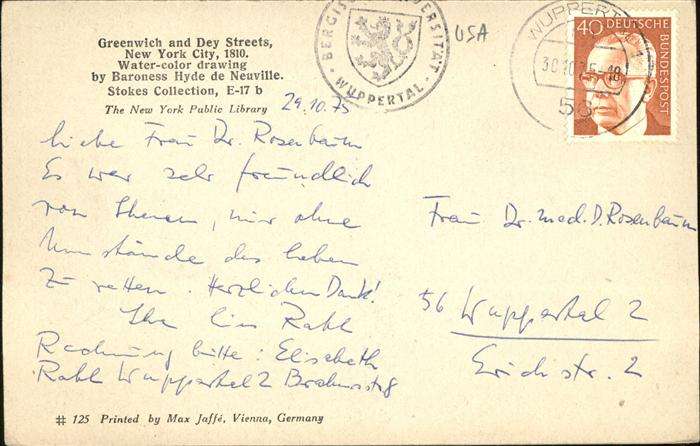 Greenwich and Dey Streets,
New York City, 1810.
Water-color drawing
by Baroness Hyde de Neuville.
Stokes Collection, E-17 b
The New York Public Library
29.10.75
liebe Frau Dr. Rosenbaum
Es war sehr freundlich
von Ihnen, mir ohne
Umstände das leben
zu retten. Herzlichen Dank!
Ihre Rahl
Rechnung bitte: Elisabeth
Rahl Wuppertal 2 Brahmsstr
# 125 Printed by Max Jaffé, Vienna, Germany
BERGISCHE UNIVERSITÄT
WUPPERTAL
USA
WUPPERTAL
30.10.75-18
56
40 DEUTSCHE
BUNDESPOST
Frau Dr. med. D. Rosenbaum
56 Wuppertal 2
Erichstr. 2